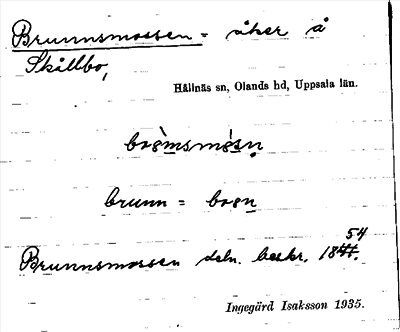 Brunnsmossen = åker å
Skållbo,
Hållnäs sn, Olands hd, Uppsala län.
brunn =
54
Brunnsmossen deln. beskr. 18
Ingegärd Isaksson 1935.